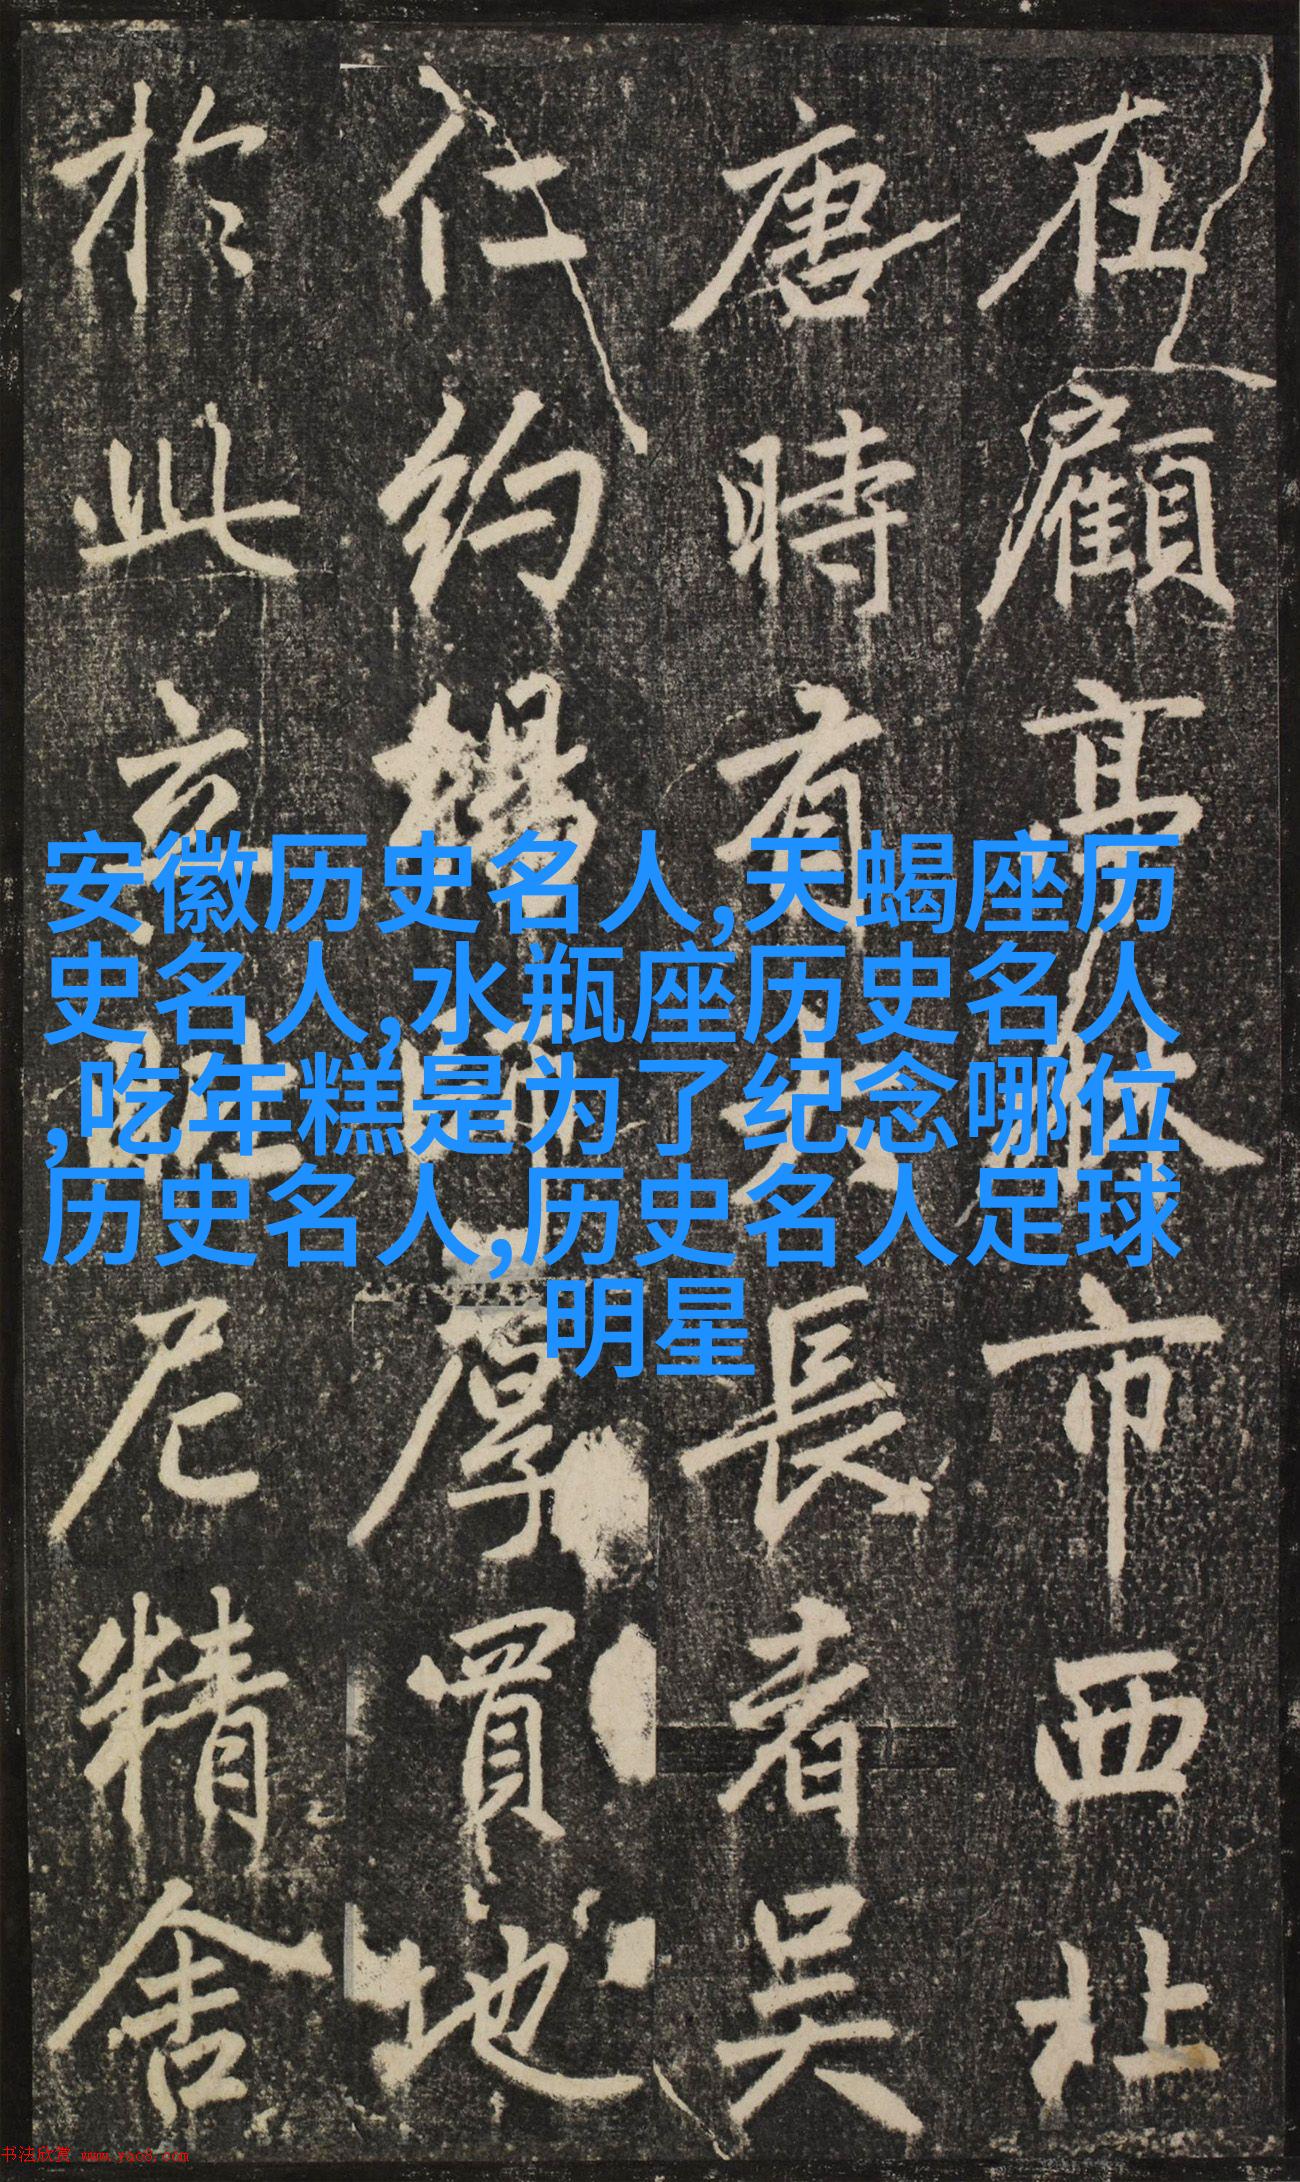 在顧亭市西北
唐時有長者吳
仁約楊厚買地
於此立尼精舍
安徽历史名人,天蝎座历
史名人,水瓶座历史名人
,吃年糕是为了纪念哪位
历史名人,历史名人足球
明星
书法欣赏 www.yac8.com